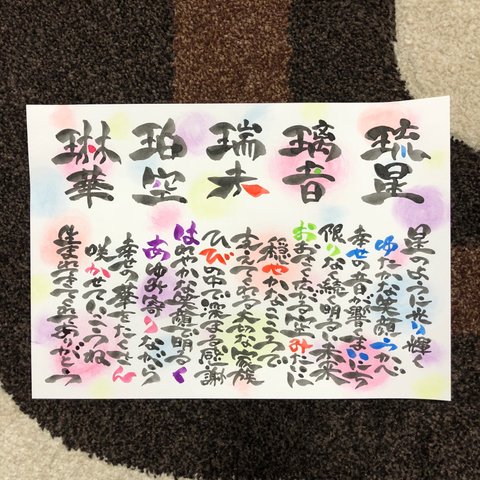 琉星
璃音
瑞未
珀空
琳華
星のように光り輝く
ゆたかな笑顔うかべ
幸せの音が響くまいにち
限りなく続く明るい未来
おおきく広がる空みたいに
穏やかなこころで
支えてくれる大切な家族
ひびの中で深まる感謝
はなやかな笑顔で明るく
あゆみ寄りながら
幸せの華をたくさん
咲かせていこうね
産まれてきてくれてありがとう